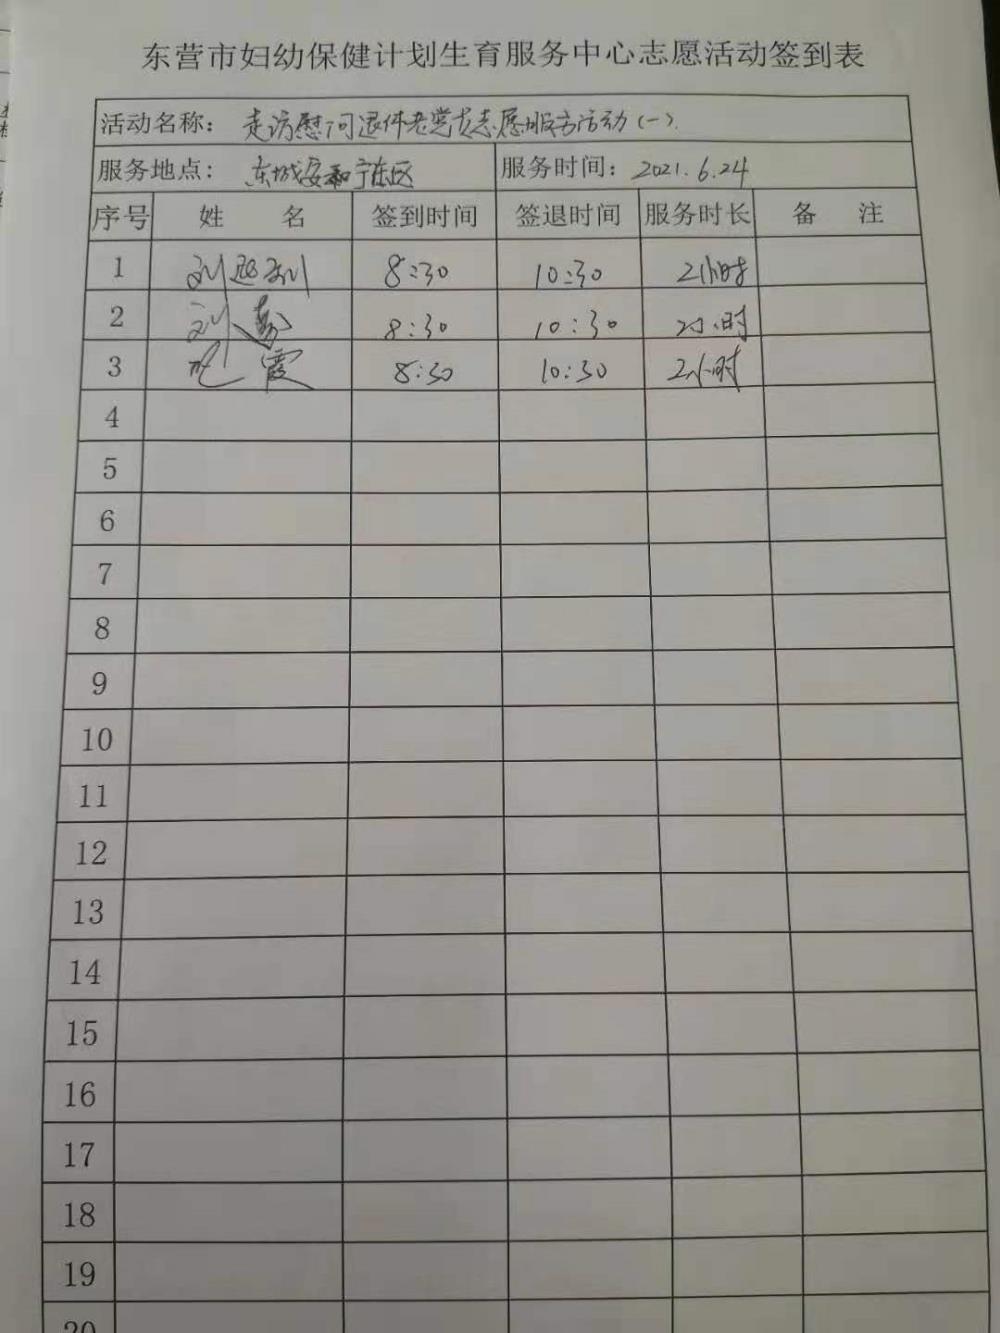 东营市妇幼保健计划生育服务中心志愿活动签到表
活动名称： 走访慰问退休老党员志愿服务活动(一).
服务地点： 东城安和宁东区 服务时间： 2021.6.24
序号 姓 名 签到时间 签退时间 服务时长 备 注
1 刘 8:30 10:30 2小时
2 刘 8:30 10:30 2小时
3 霞 8:30 10:30 2小时
4
5
6
7
8
9
10
11
12
13
14
15
16
17
18
19
20